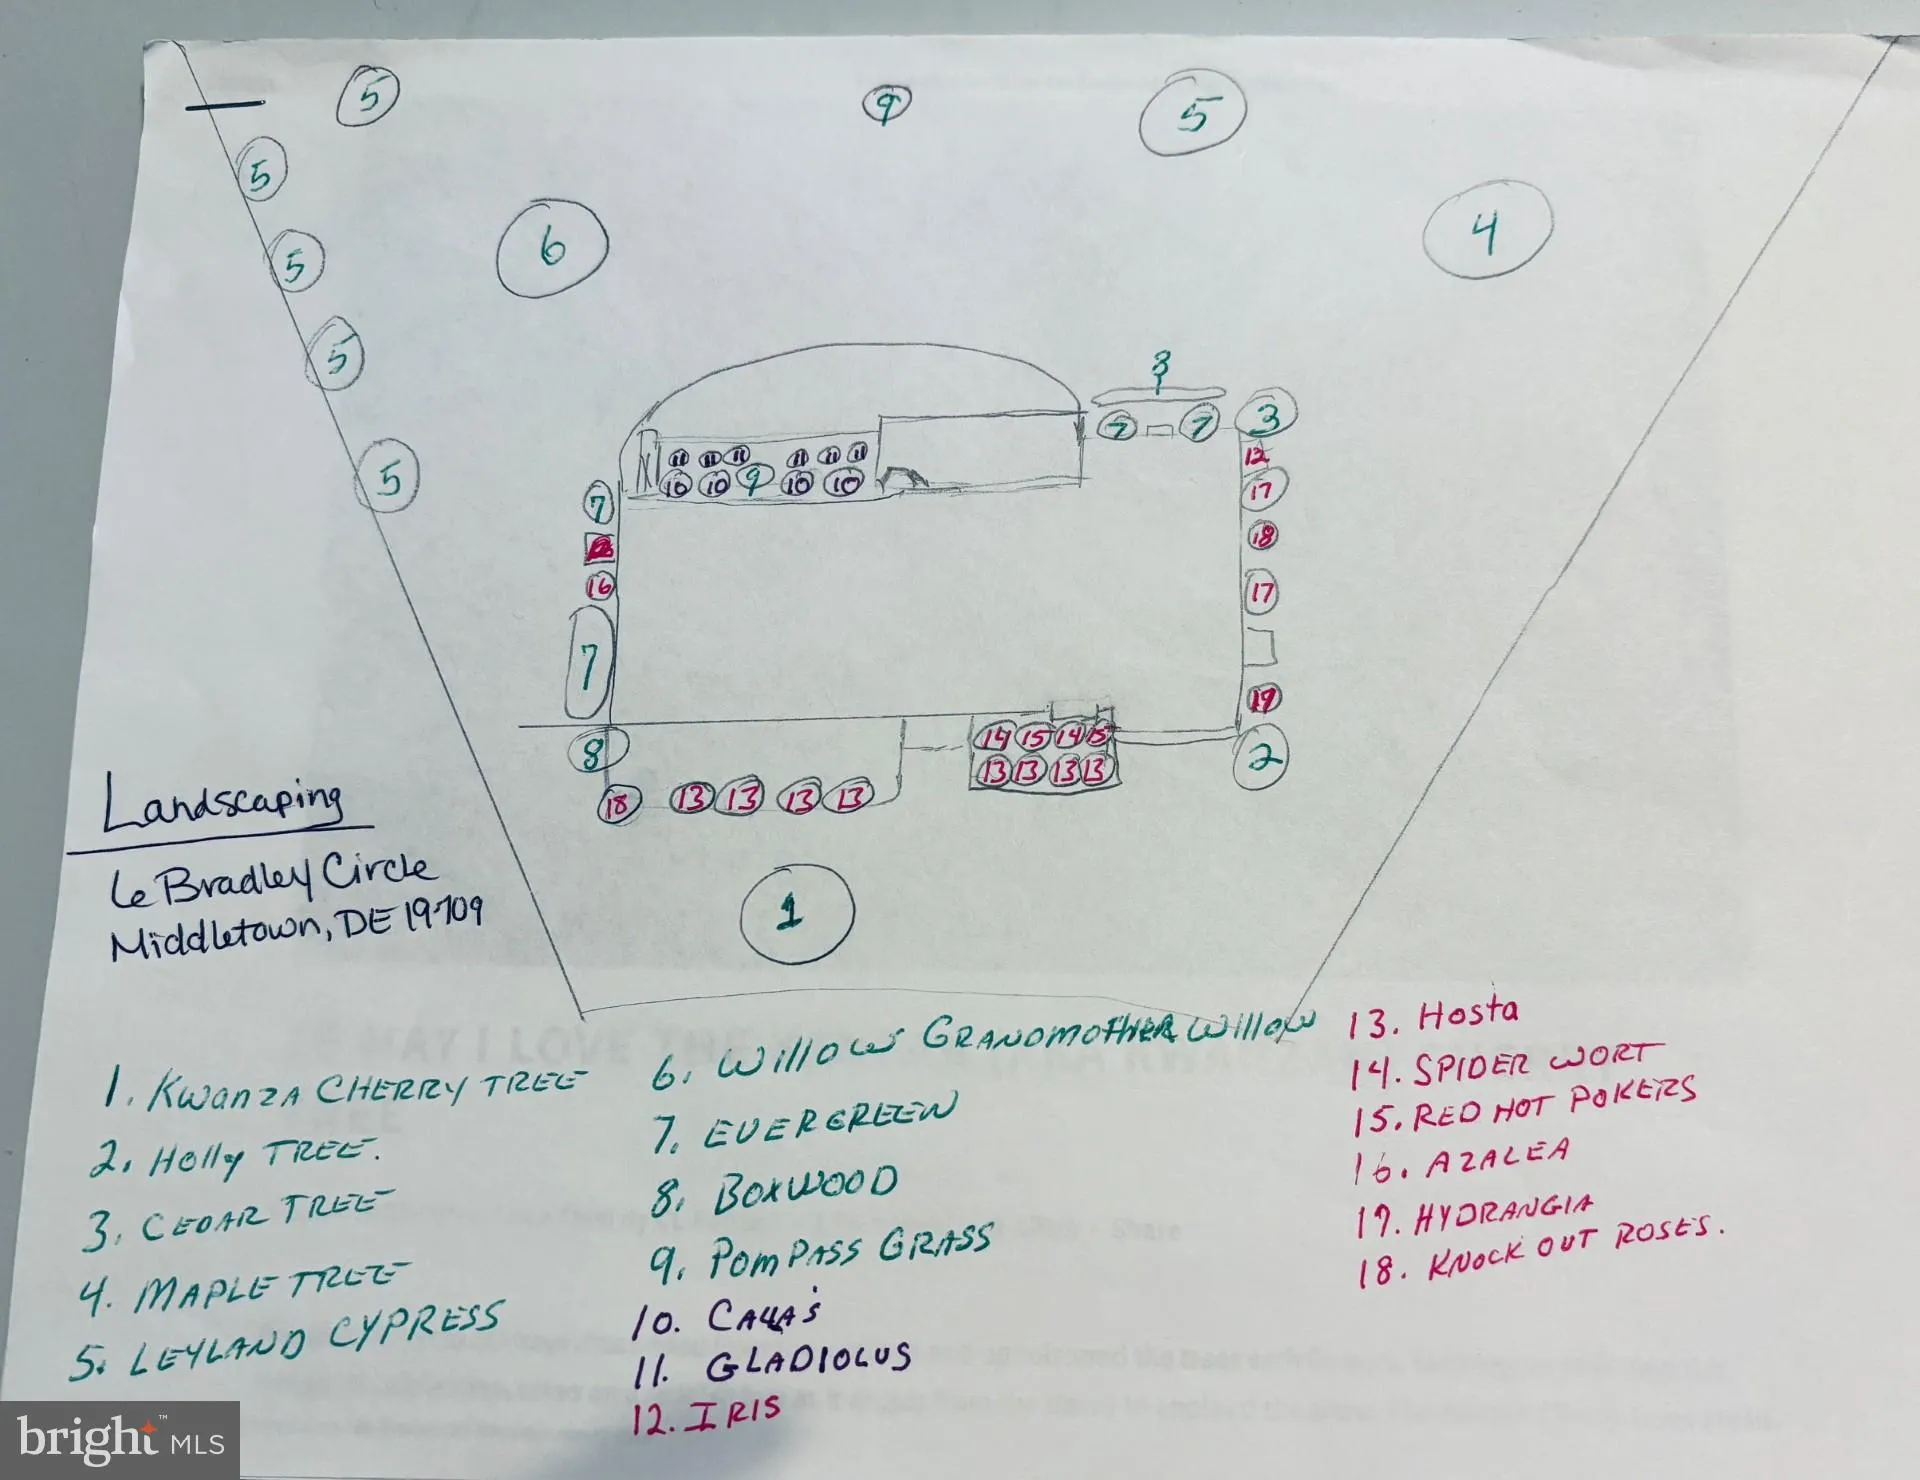 5
9
5
5
6
4
5
5
8
7
7
3
11 11 11 11 11 11
12
5
10 10 9 10 10
17
7
18
16
17
7
19
14 15 14 15
8
2
13 13 13 13
18
13 13 13 13
Landscaping
6 Bradley Circle
Middletown, DE 19709
1
1. KWANZA CHERRY TREE
2. Holly TREE.
3. CEDAR TREE
4. MAPLE TREE
5. LEYLAND CYPRESS
6. WILLOW GRANDMOTHER WILLOW
7. EVERGREEN
8. BOXWOOD
9. POMPASS GRASS
10. CALLA'S
11. GLADIOLUS
12. IRIS
13. Hosta
14. SPIDER WORT
15. RED HOT POKERS
16. AZALEA
17. HYDRANGIA
18. KNOCK OUT ROSES.
bright™ MLS